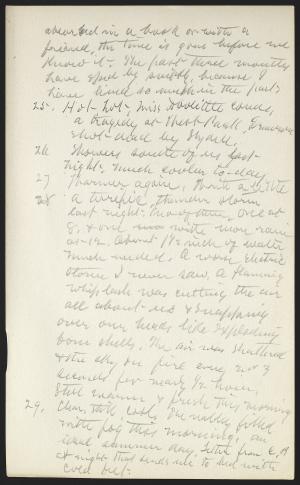 absorbed in a book or with a
friend, the time is gone before we
know it. The past three months
have sped by swiftly, because I
have lived so much in the past.
25. Hot, hot, Miss Doolittle comes,
a tragedy at West Park,
shot dead by
26 Showers south of us last
night, much cooler to-day.
27 Warmer again,
28 a terrific thunder storm
last night; two of them, one at
8, & one more with more rain
at 12. About 1½ inch of water
much needed. A worse electric
storm I never saw. A flaming
whip lash was cutting the air
all about us & snapping
over our heads like exploding
bomb shells. The air was shattered
& the sky on fire every 2 or 3
seconds for nearly ½ hour.
Still warm & fresh this morning
29. Clear, still, cool, the valley filled
with fog this morning, an
ideal summer day. Letter from C. B.
& night that sends me to bed with
cold feet.